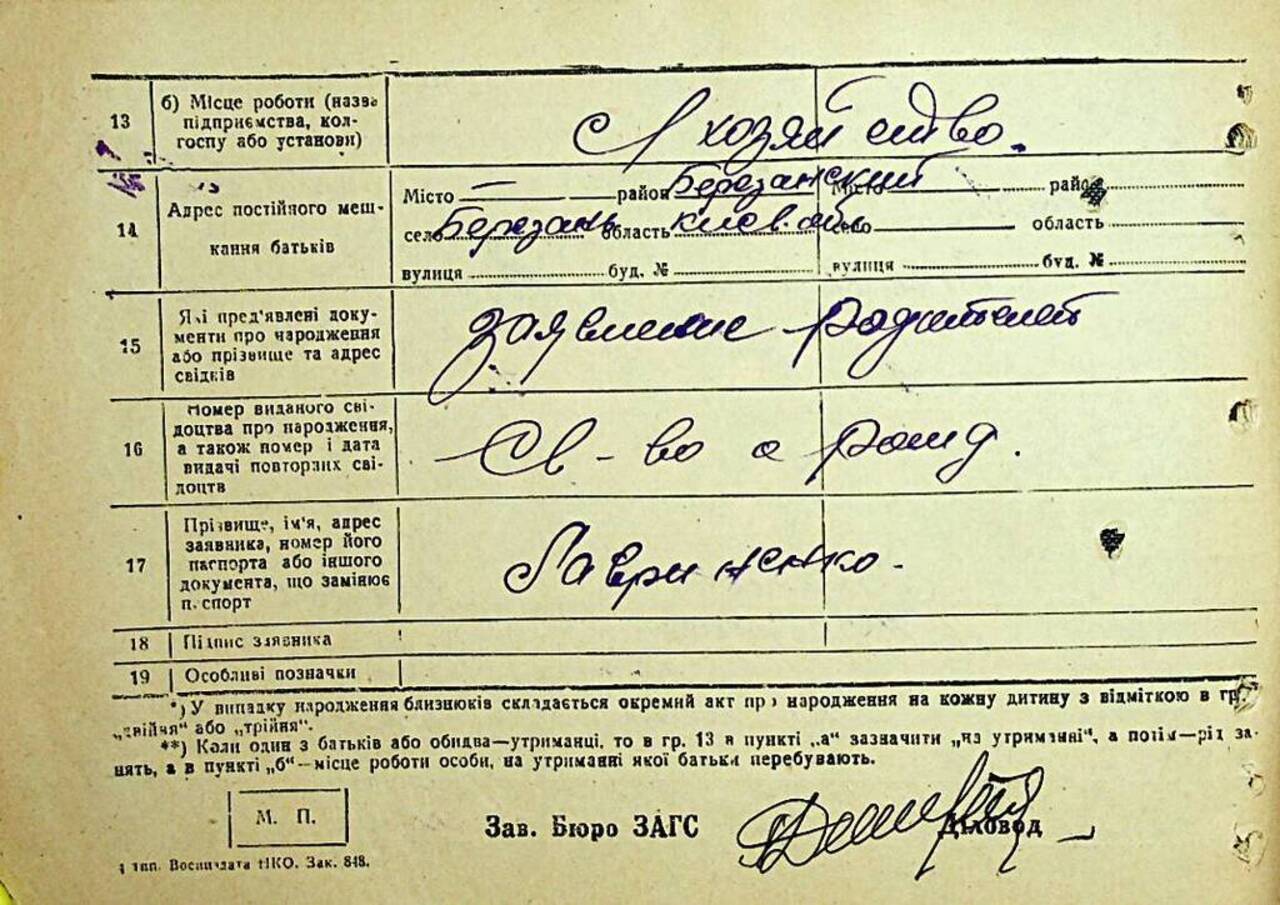 13 б) Місце роботи (назва
підприємства, кол-
госпу або установи)
С/хозяйство.
14 Адрес постійного меш-
кання батьків
Місто — район Березанский Місто район
село Березань область киев. село область
вулиця буд. № вулиця буд. №
15 Які пред'явлені доку-
менти про народження
або прізвище та адрес
свідків
заявление родителей
16 Номер виданого сві-
доцтва про народження,
а також номер і дата
видачі повторних сві-
доцтв
Св-во о рожд.
17 Прізвище, ім'я, адрес
заявника, номер його
паспорта або іншого
документа, що замінює
паспорт
Лавриненко.
18 Підпис заявника
19 Особливі позначки
*) У випадку народження близнюків складається окремий акт про народження на кожну дитину з відміткою в гр.
„двійня“ або „трійня“.
**) Коли один з батьків або обидва—утриманці, то в гр. 13 в пункті „а“ зазначити „на утриманні“, а потім—рід за-
нять, а в пункті „б“—місце роботи особи, на утриманні якої батьки перебувають.
М. П.
Зав. Бюро ЗАГС Діловод
Воениздата НКО. Зак. 848.